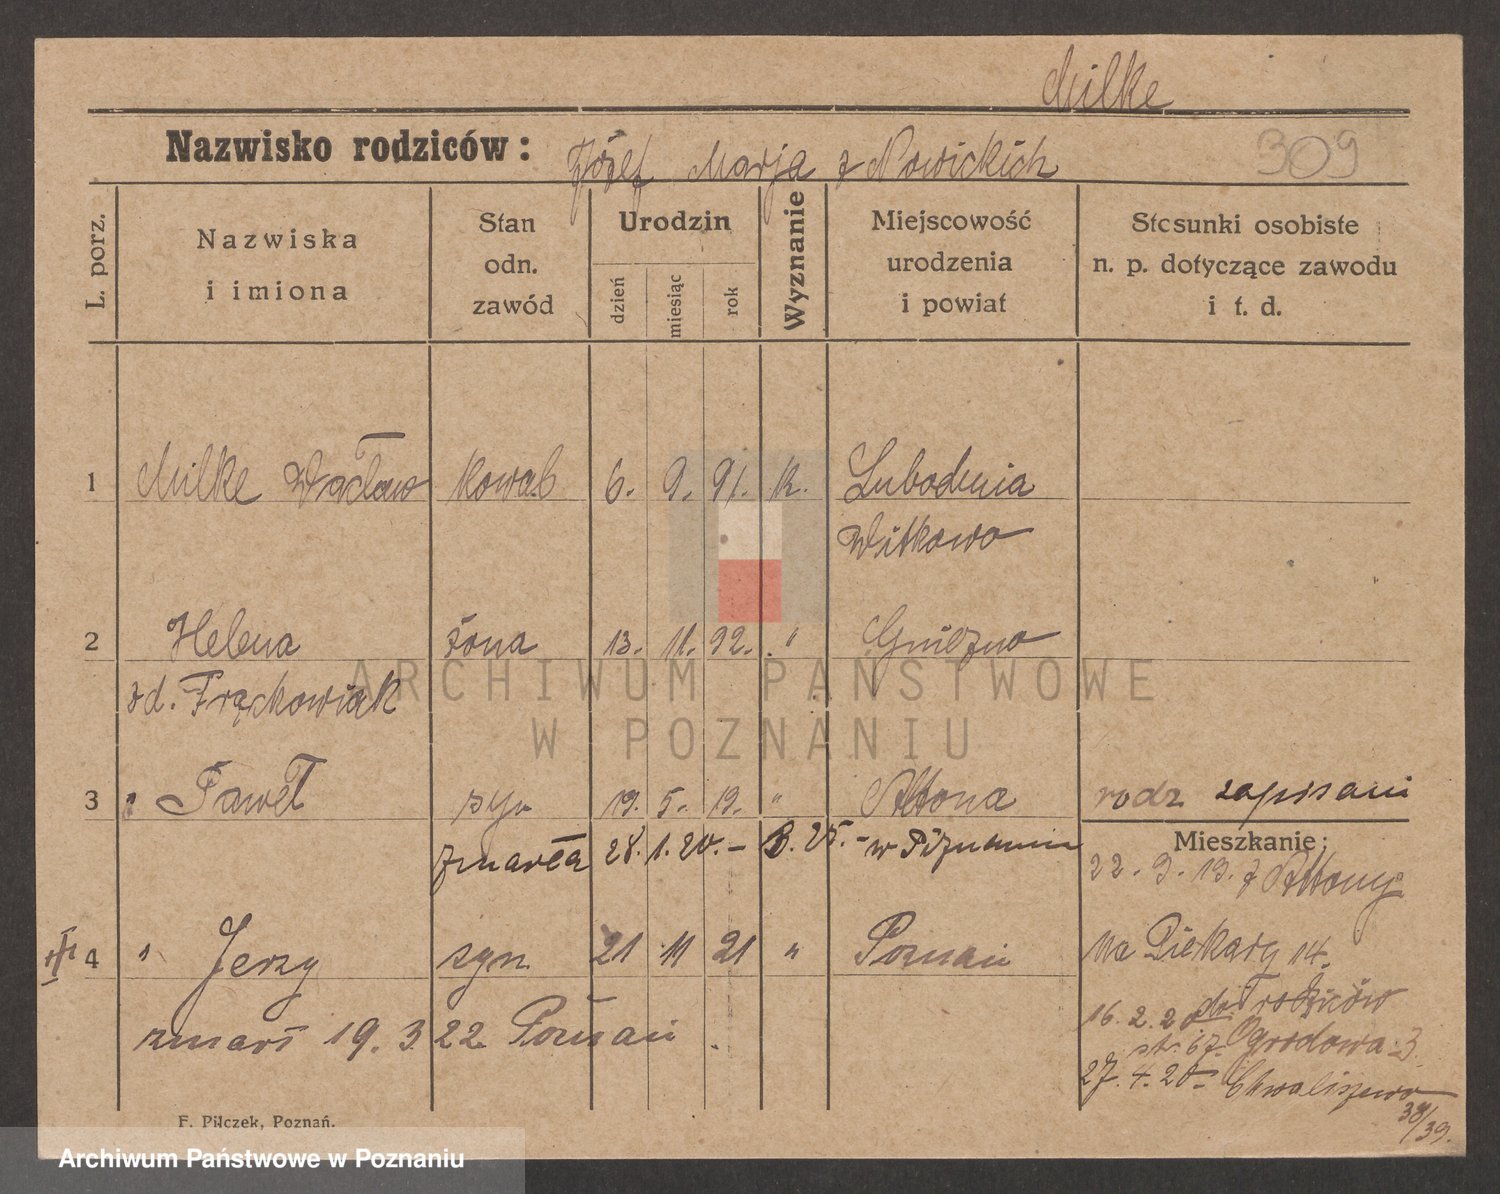 Milke
Nazwisko rodziców: Józef Marja z Nowickich 309
L. porz.
Nazwiska i imiona
Stan odn. zawód
Urodzin
dzień miesiąc rok
Wyznanie
Miejscowość urodzenia i powiat
Stosunki osobiste n. p. dotyczące zawodu i t. d.
1 Milke Wacław kowal 6. 9. 91. k. Lubochnia
Witkowo
2 Helena żona 13. 11. 92. " Gniezno
zd. Frąckowiak
3 " Paweł syn 19. 5. 19. " Altona rodz zapisani
zmarła 28. 1. 20. – w Poznaniu
Mieszkanie:
22. 9. 19. z Altony
4 " Jerzy syn 21 11 21 " Poznań Na Piekary 14.
zmarł 19. 3. 22. Poznań
16. 2. 20 do rodziców
Ogrodowa 3
27. 4. 20 Chwaliszewo
38/39.
F. Pilczek, Poznań.
ARCHIWUM PAŃSTWOWE
W POZNANIU
Archiwum Państwowe w Poznaniu